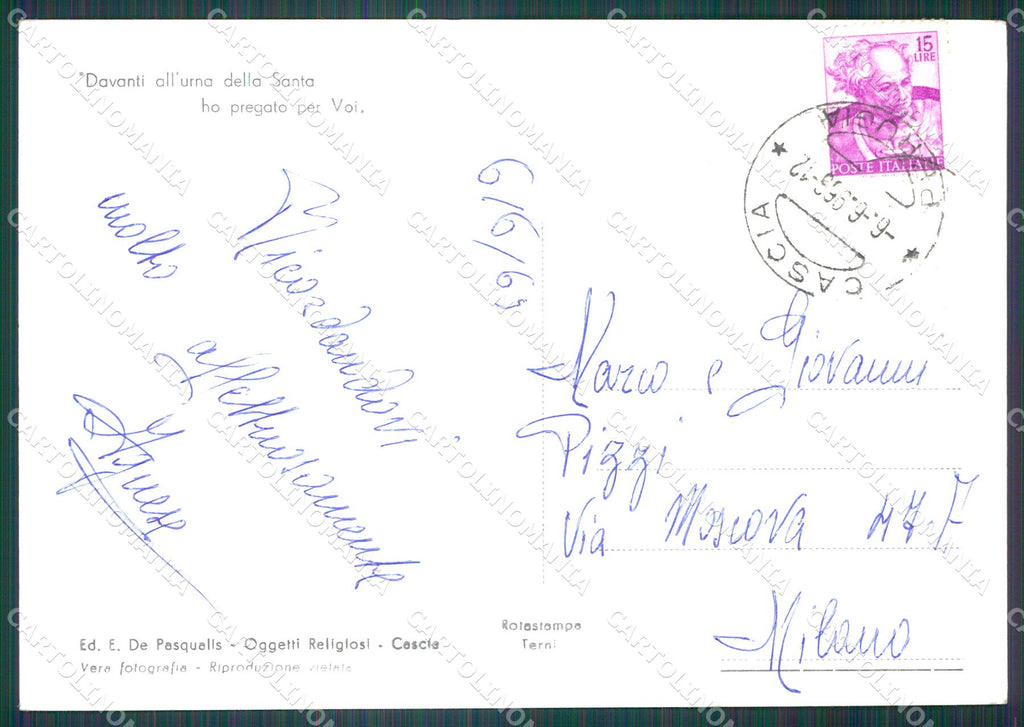 "Davanti all'urna della Santa
ho pregato per Voi.
15
LIRE
POSTE ITALIANE
CASCIA
PERUGIA
-6.-6.963-12
6/6/63
Ricordandovi
molto
affettuosamente
Agnese
Marco e Giovanni
Pizzi
Via Moscova 47.7
Milano
Ed. E. De Pasqualis - Oggetti Religiosi - Cascia
Vera fotografia - Riproduzione vietata
Rotostampa
Terni
CARTOLINOMANIA